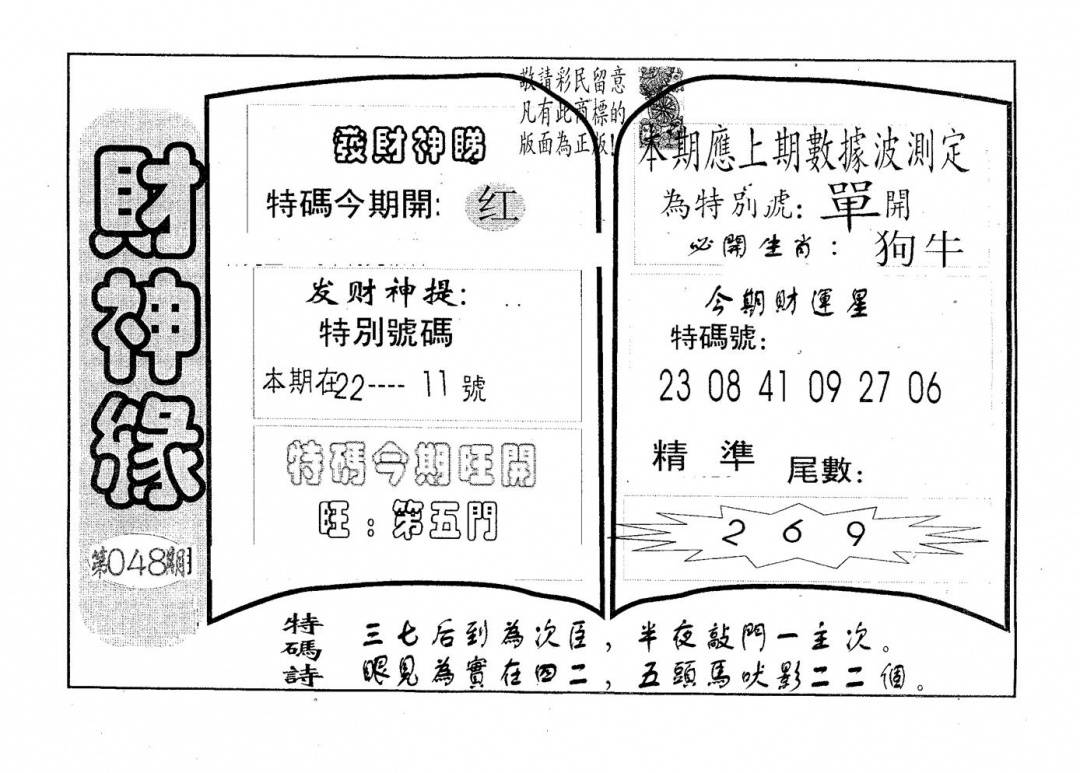 財神緣
第048期
敬請彩民留意
凡有此商標的
版面為正版!
發財神睇
特碼今期開: 红
发财神提:
特別號碼
本期在22----11號
特碼今期旺開
旺:第五門
本期應上期數據波測定
為特別虎:單開
必開生肖:狗牛
今期財運星
特碼號:
23 08 41 09 27 06
精準 尾數:
2 6 9
特碼詩
三七后到為次臣,半夜敲門一主次。
眼見為實在四二,五頭馬吠影二二個。